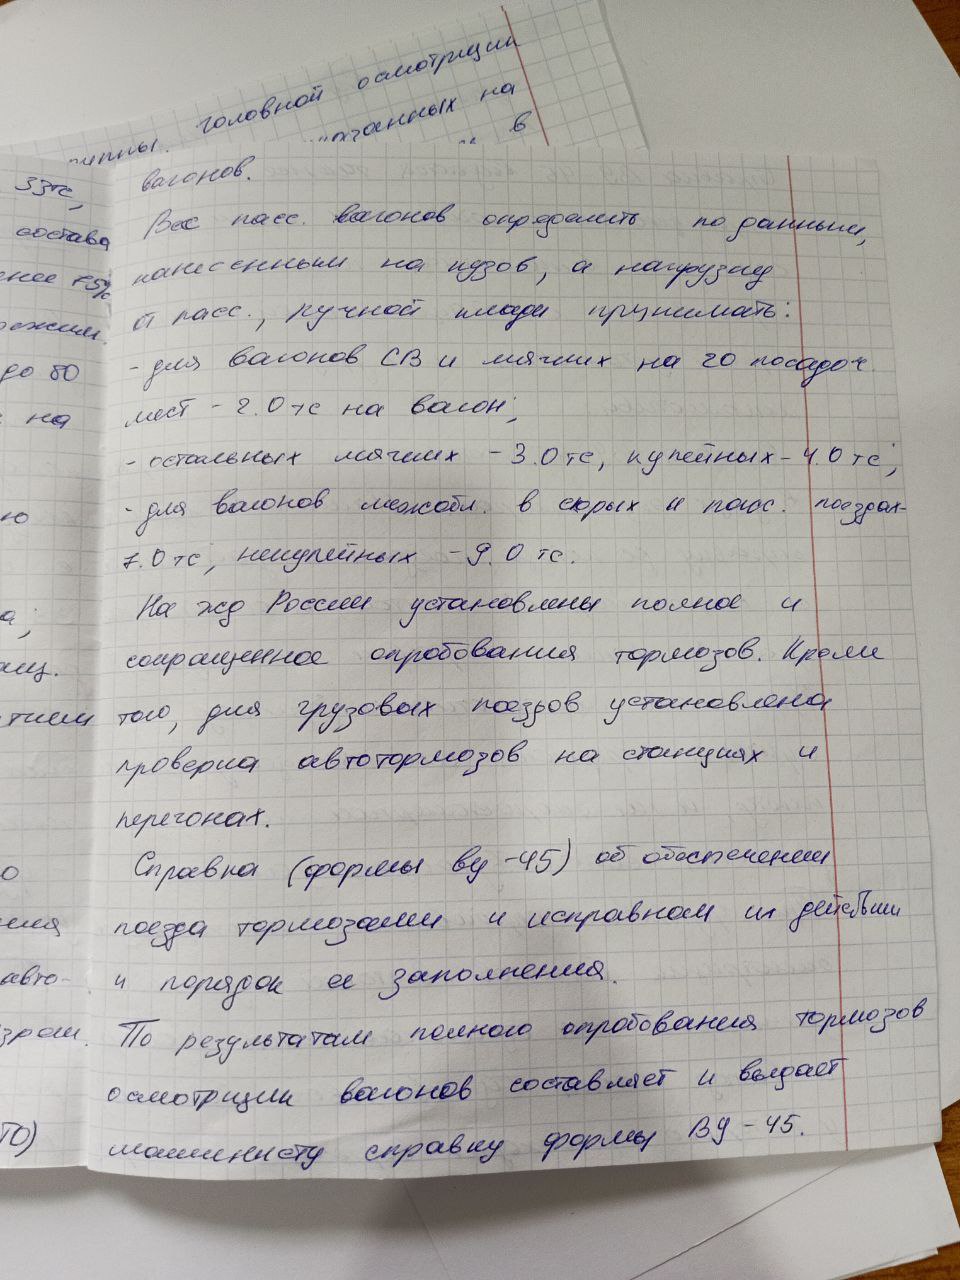 головной осмотрщик
на
в
33тс,
состава
до 80
на
ю
а;
тием
о
ния
авто-
ТО)
вагонов.
Вес пасс. вагонов определить по данным,
нанесенным на кузов, а нагрузку
от пасс., ручной клади принимать:
- для вагонов СВ и мягких на 20 посадоч.
мест - 2.0 тс на вагон;
- остальных мягких - 3.0 тс, купейных - 4.0 тс;
- для вагонов межобл. в скорых и пасс. поездах-
7.0 тс, некупейных - 9.0 тс.
На жд России установлены полное и
сокращенное опробования тормозов. Кроме
того, для грузовых поездов установлена
проверка автотормозов на станциях и
перегонах.
Справка (формы ву-45) об обеспечении
поезда тормозами и исправном их действии
и порядок ее заполнения.
По результатам полного опробования тормозов
осмотрщик вагонов составляет и выдает
машинисту справку формы ВУ-45.